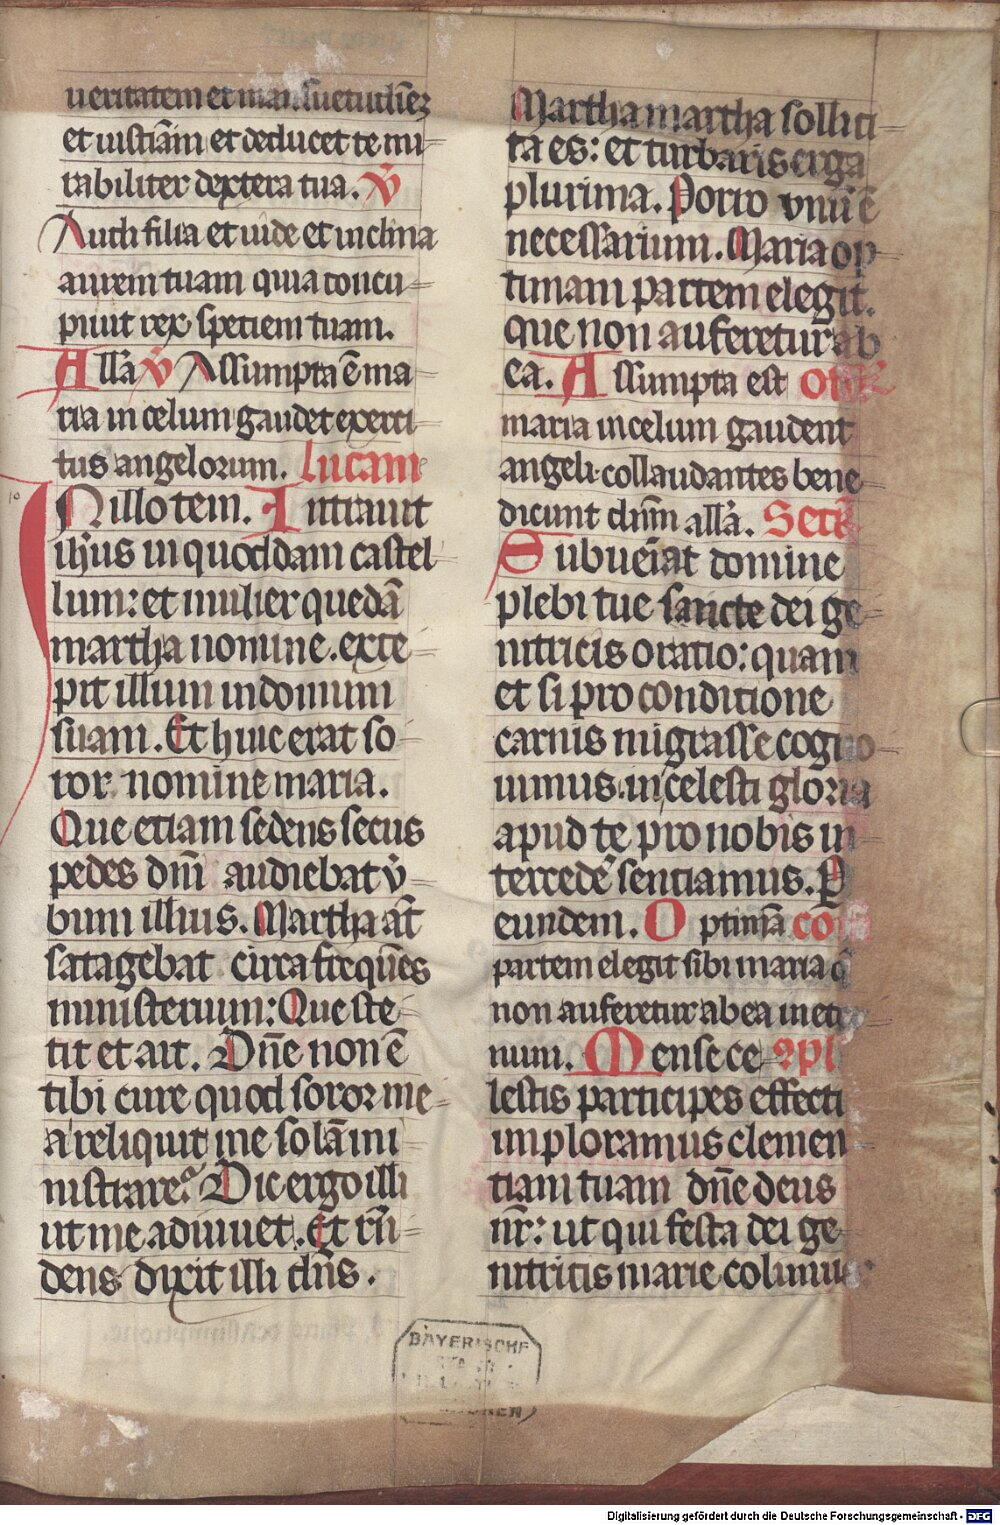 ueritatem et mansuetudinez
et iustiam et deducet te mi
rabiliter dextera tua. V̄
Audi filia et uide et inclina
aurem tuam quia concu
piuit rex speciem tuam.
Alla V̄ Assumpta ē ma
ria in celum gaudet exerci
tus angelorum. Lucam
IN illo tem. Intrauit
ihus in quoddam castel
lum: et mulier quedā
martha nomine. exce
pit illum in domum
suam. Et huic erat so
ror nomine maria.
Que etiam sedens secus
pedes dni audiebat v̄
bum illius. Martha at̄
satagebat circa frequēs
ministerium: Que ste
tit et ait. Dn̄e non ē
tibi cure quod soror me
a reliquit me solā mi
nistrare? Dic ergo illi
ut me adiuuet. Et rn̄
dens dixit illi dn̄s.
Martha martha sollici
ta es: et turbaris erga
plurima. Porro vnū ē
necessarium. Maria op
timam partem elegit.
que non auferetur ab
ea. Assumpta est
maria in celum gaudent
angeli collaudantes bene
dicunt dn̄m all̄a. Secr
Subueīat domine
plebi tue sancte dei ge
nitricis oratio: quam
et si pro conditione
carnis migrasse cogno
uimus. in celesti gloria
apud te pro nobis in
tercedē sentiamus. P
eundem. Optimā co
partem elegit sibi maria q̄
non auferetur ab ea in eter
num. Mense ce 2pl
lestis participes effecti
imploramus clemen
tiam tuam dn̄e deus
nr̄: ut qui festa dei ge
nitricis marie colimus
BAYERISCHE
Digitalisierung gefördert durch die Deutsche Forschungsgemeinschaft - DFG